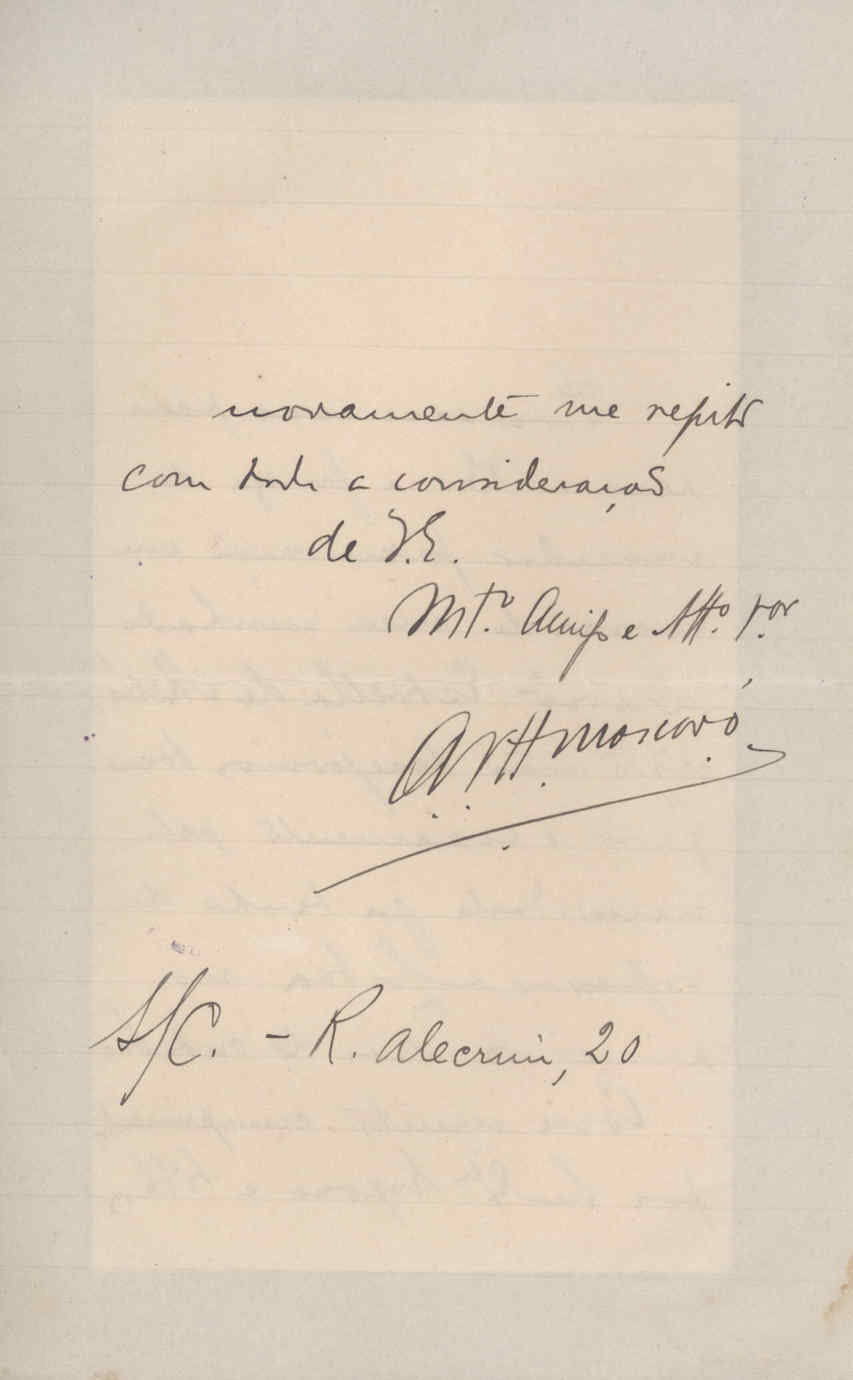 novamente me repito
com toda a consideração
de V.E.
Mt.º Amigo e Att.º V.or
S/C. - R. Alecrim, 20